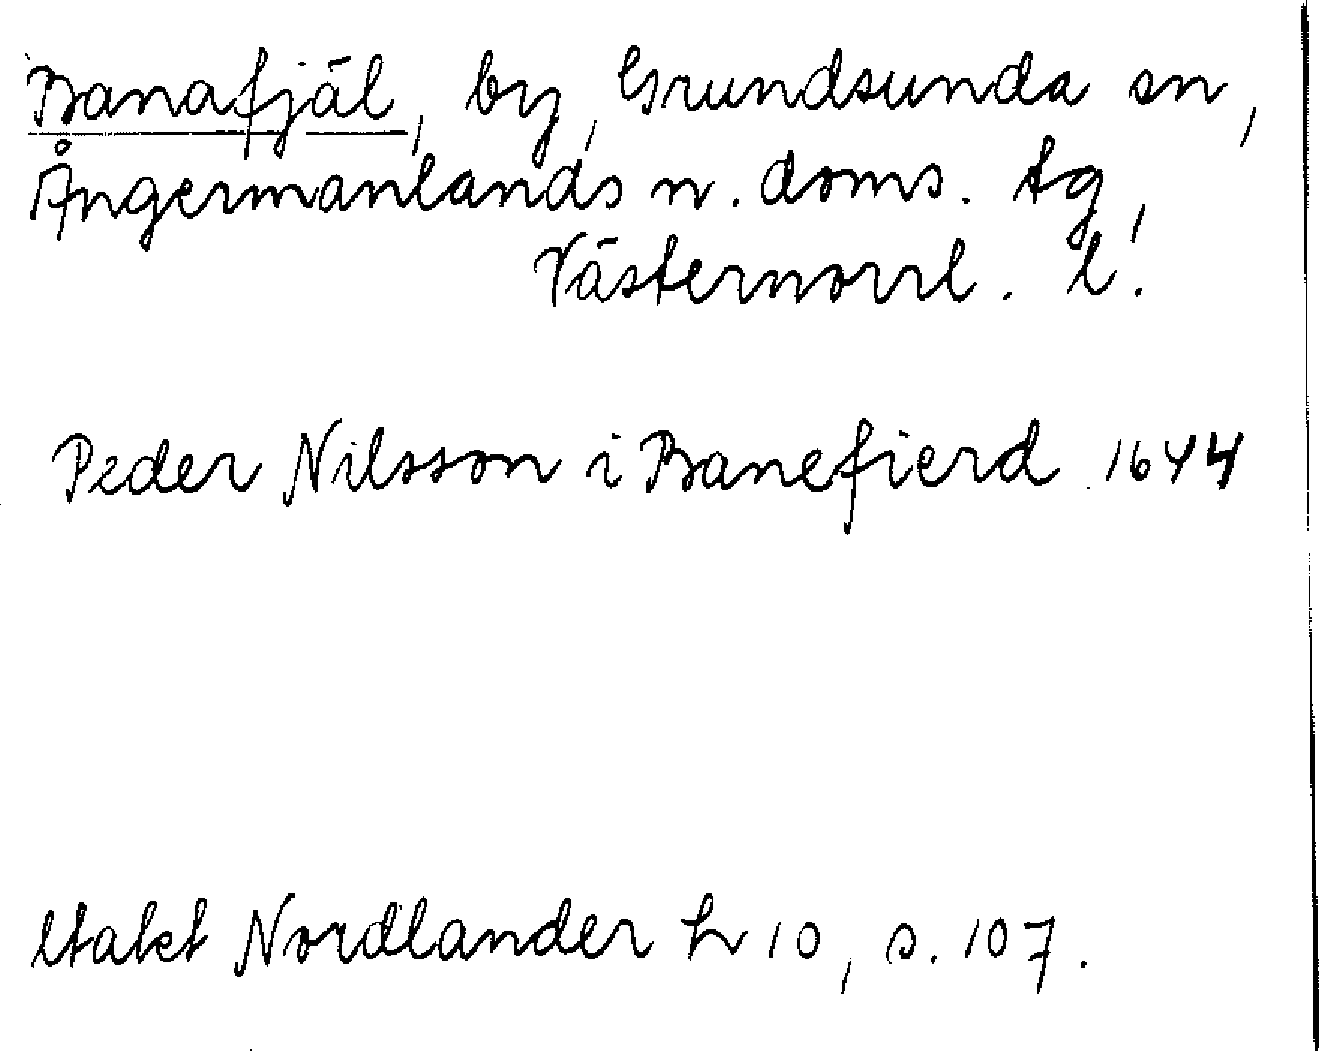 Banafjäl, by, Grundsunda sn,
Ångermanlands n. doms. tg,
Västernorrl. l.
Peder Nilsson i Banefierd 1644
Utakt Nordlander h 10, s. 107.